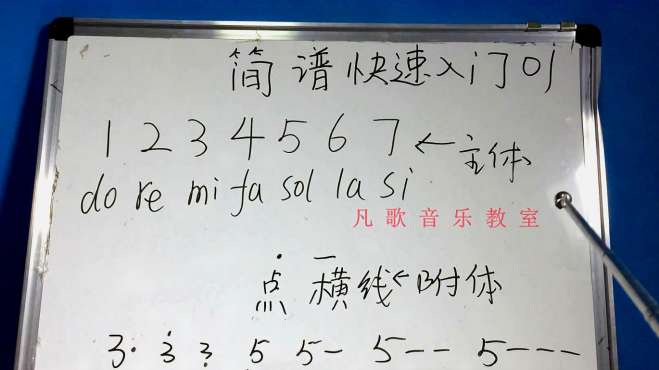 简谱快速入门01
1 2 3 4 5 6 7 ←主体
do re mi fa sol la si
凡歌音乐教室
· —
点 横线←附体
3· 3̇ 3̣ 5 5- 5-- 5---